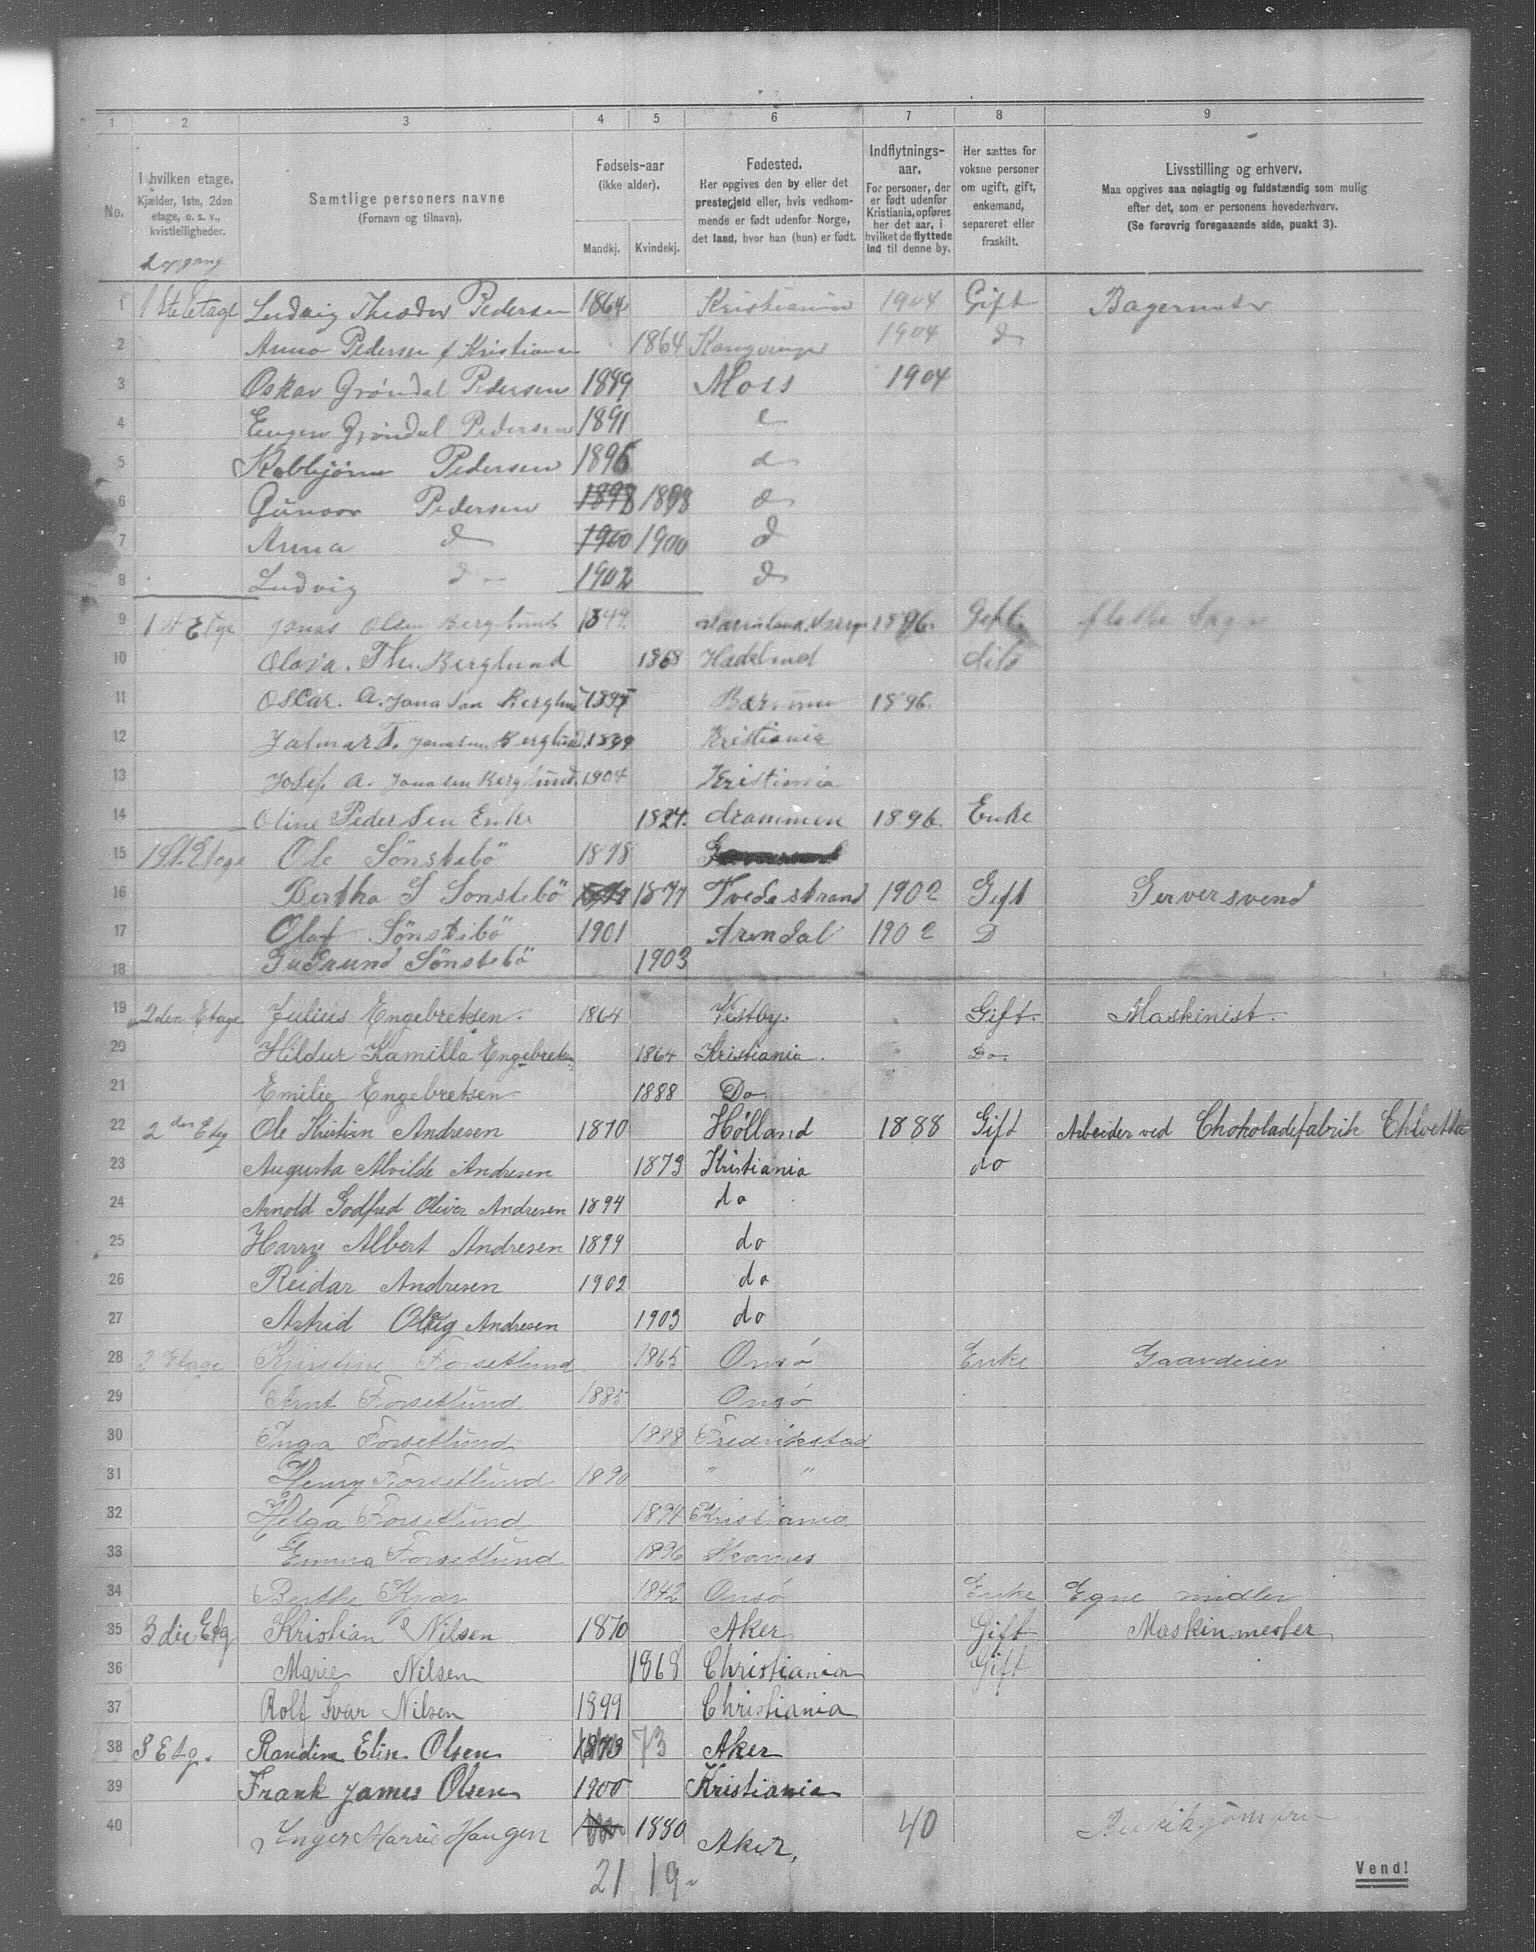 1 2 3 4 5 6 7 8 9
No.
I hvilken etage.
Kjælder, 1ste, 2den
etage, o. s. v.,
kvistleiligheder.
Samtlige personers navne
(Fornavn og tilnavn).
Fødsels-aar
(ikke alder).
Mandkj. Kvindekj.
Fødested.
Her opgives den by eller det
prestegjeld eller, hvis vedkom-
mende er født udenfor Norge,
det land, hvor han (hun) er født.
Indflytnings-
aar.
For personer, der
er født udenfor
Kristiania, opføres
her det aar, i
hvilket de flyttede
ind til denne by.
Her sættes for
voksne personer
om ugift, gift,
enkemand,
separeret eller
fraskilt.
Livsstilling og erhverv.
Maa opgives saa nøiagtig og fuldstændig som mulig
efter det, som er personens hovederhverv.
(Se forøvrig foregaaende side, punkt 3).
opgang
1 1ste Etage Ludvig Theodor Pedersen 1864 Kristiania 1904 Gift
2 Anna Pedersen f Kristiansen 1864 1904 d
3 Oskar Grøndal Pedersen 1889 Moss 1904
4 Eugen Grøndal Pedersen 1891
5 Pedersen 1896 d
6 Gunvor Pedersen 1898 1898 d
7 Anna d 1900 1900 d
8 Ludvig d 1902 d
9 1st Etge Jonas Olsen Berglund 1849 1896 Gift
10 Th. Berglund 1868 Hadeland
11 Oscar. A. Jonassen Berglund Bærum 1896
12 Jalmar T. Jonassen Berglund 1899 Kristiania
13 Josef. A. Jonassen Berglund. 1904 Kristiania
14 Oline Pedersen Enke 1824. drammen 1896 Enke
15 1st. Etage Ole Sönstebö 1878
16 Bertha S Sonstebö 1877 Tvedestrand 1902 Gift Gerversvend
17 Olaf Sönstebö 1901 Arendal 1902 D
18 Gudrund Sönstebö 1903
19 2den Etage Julius Engebretsen. 1864 Vestby. Gift. Maskinist.
20 Hildur Kamilla Engebretsen 1864 Kristiania. Do.
21 Emilie Engebretsen 1888 Do
22 2den Etg Ole Kristian Andresen 1870 Hølland 1888 Gift Arbeider ved Chokoladefabrik
23 Augusta Alvilde Andresen 1873 Kristiania do
24 Arnold Godfred Oliver Andresen 1894 do
25 Harry Albert Andresen 1899 do
26 Reidar Andresen 1902 do
27 Astrid Andresen 1903 do
28 2 Etage Kristine Forsetlund 1865 Onsö Enke Gaardeier
29 Arnt Forsetlund 1885 Onsö
30 Inga Forsetlund 1888 Fredrikstad
31 Henry Forsetlund 1890 " "
32 Helga Forsetlund 1894 Kristiania
33 Emma Forsetlund 1896
34 Berthe 1842 Onsö Enke Egne midler
35 3die Etg Kristian Nilsen 1870 Aker Gift Maskinmester
36 Marie Nilsen 1868 Christiania Gift
37 Rolf Ivar Nilsen 1899 Christiania
38 3 Etg. Randine Elise Olsen 1873 73 Aker
39 Frank James Olsen 1900 Kristiania
40 Inger Marrie Haugen 1880 Aker, 40
21 19
Vend!